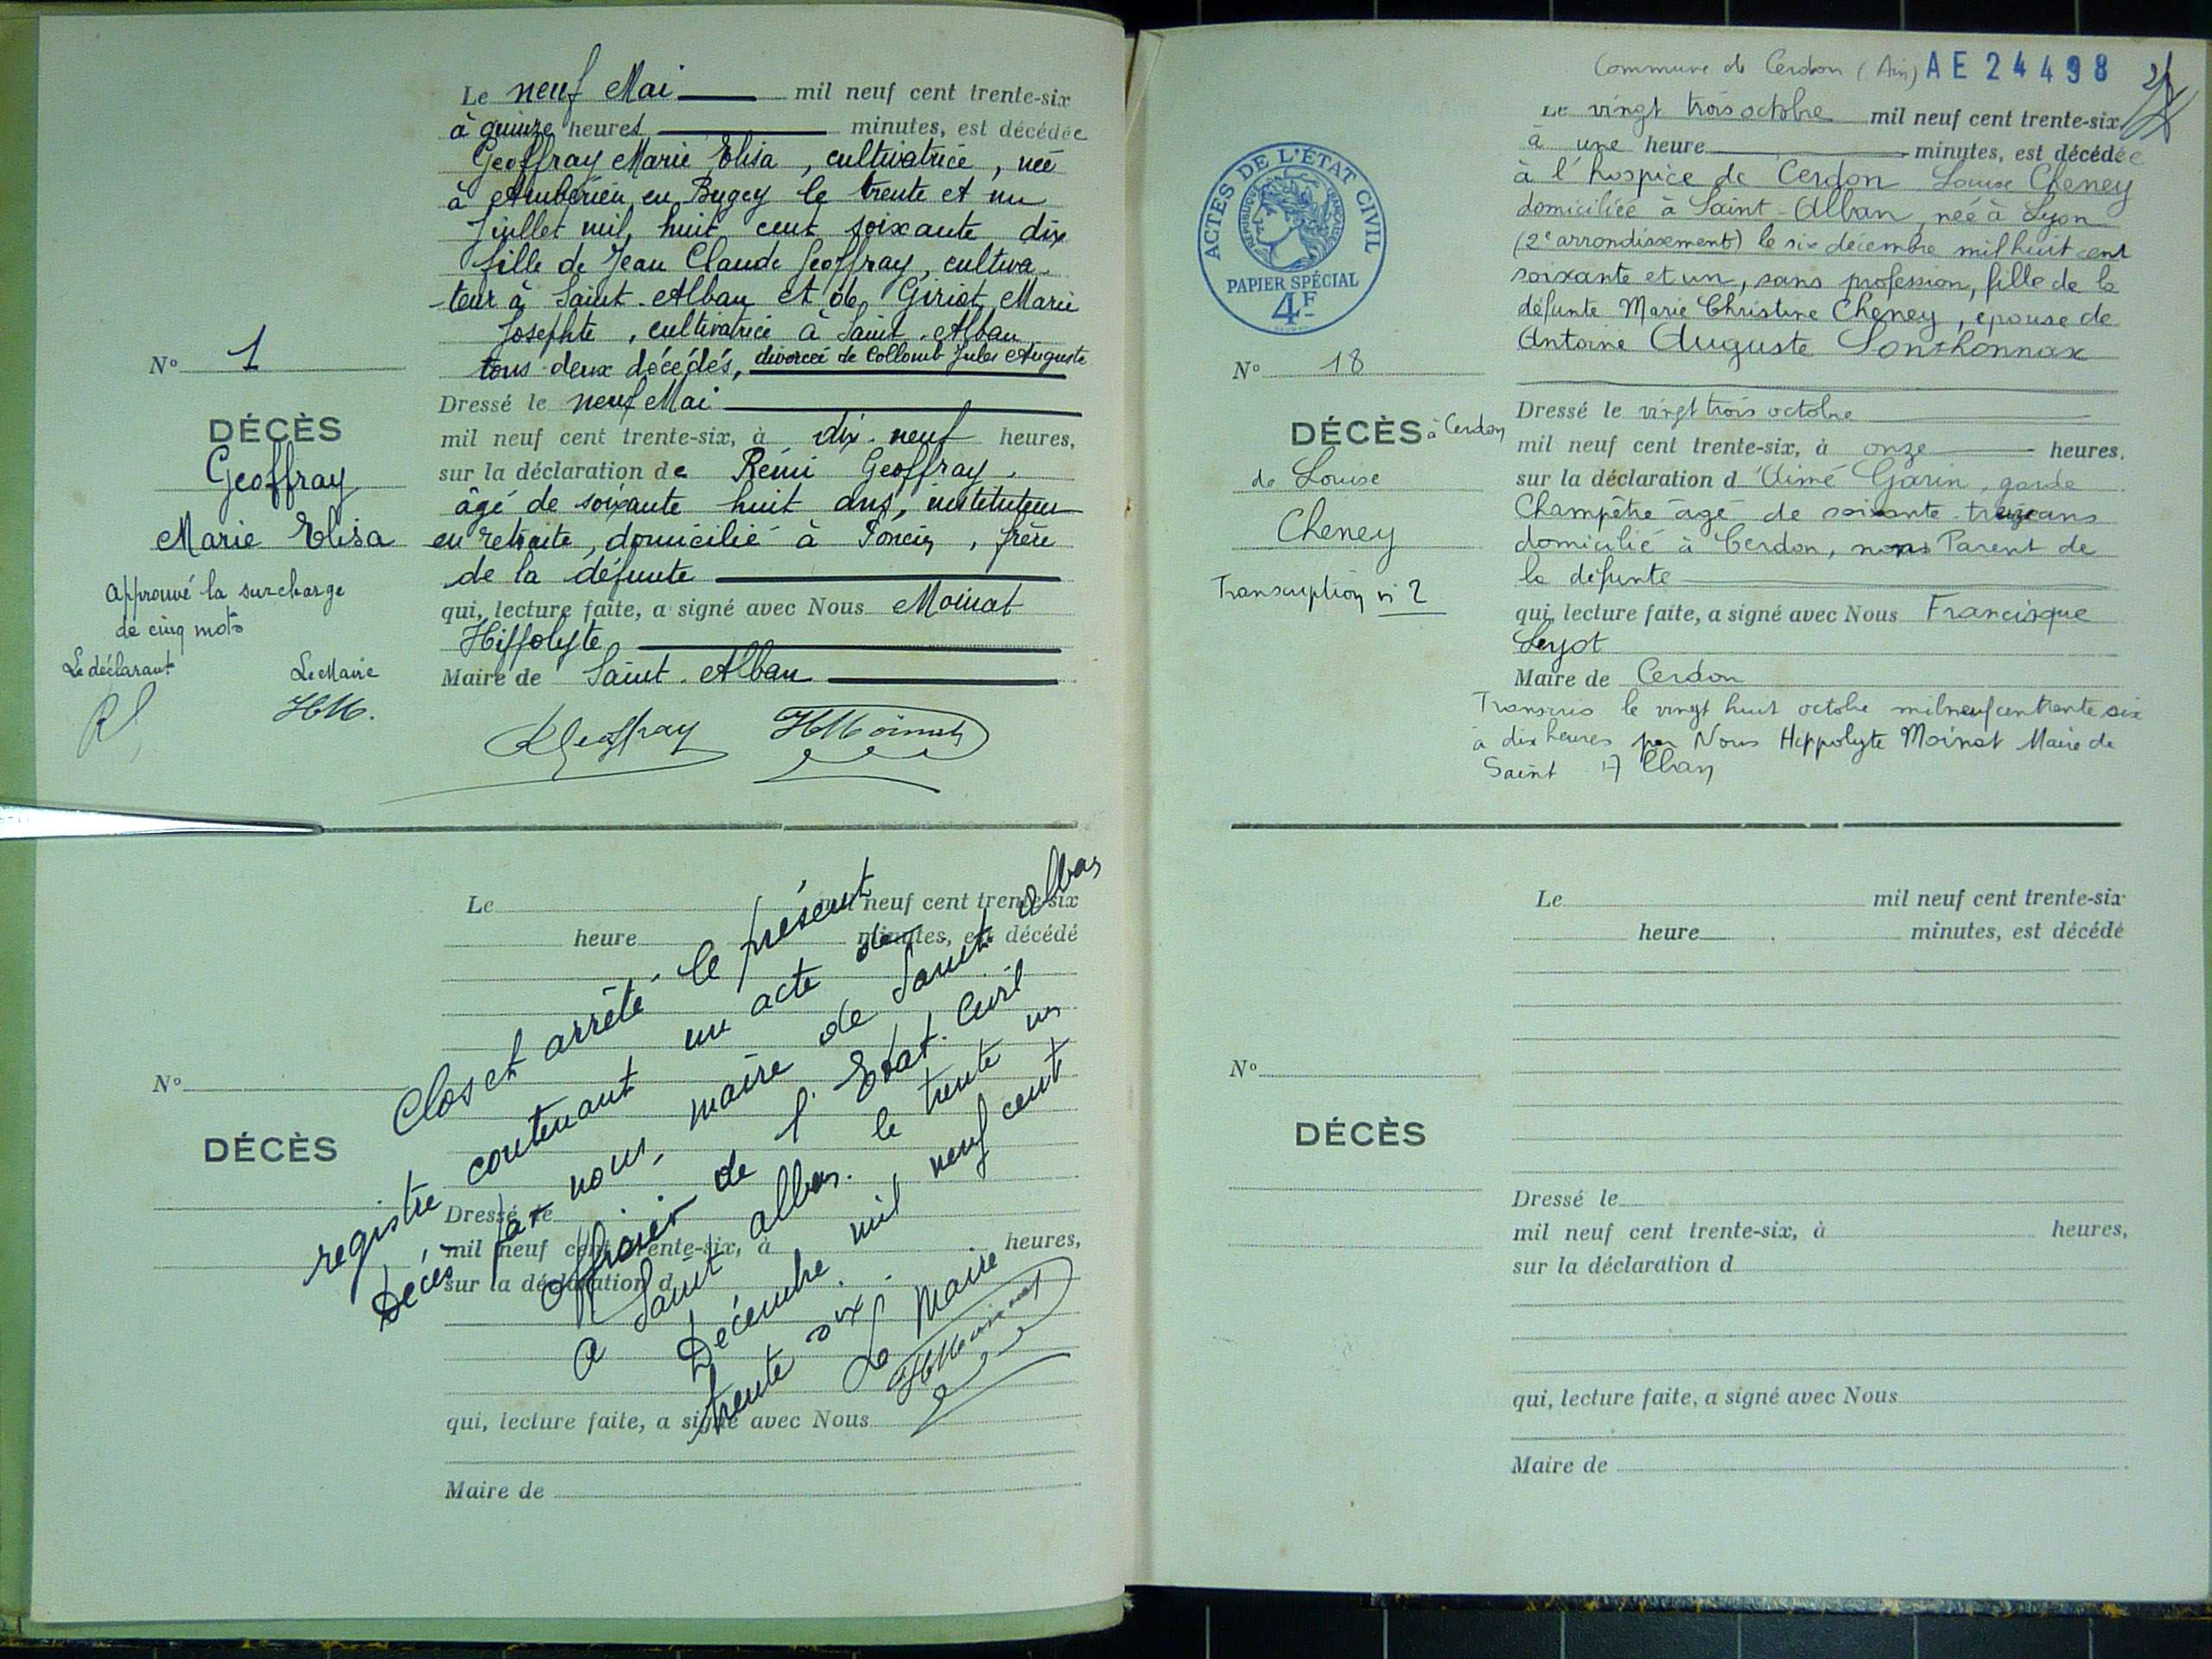 Le neuf Mai mil neuf cent trente-six
à quinze heures minutes, est décédée
Geoffray Marie Elisa, cultivatrice, née
à Ambérieu en Bugey le trente et un
Juillet mil huit cent soixante dix
fille de Jean Claude Geoffray, cultiva-
teur à Saint-Alban et de Giriat Marie
Josephte, cultivatrice à Saint-Alban
tous deux décédés, divorcée de Collomb Jules Auguste
N° 1
DÉCÈS
Geoffray
Marie Elisa
Approuvé la surcharge
de cinq mots
Le déclarant Le Maire
RG HM.
Dressé le neuf Mai
mil neuf cent trente-six, à dix-neuf heures,
sur la déclaration de Rémi Geoffray,
âgé de soixante huit ans, instituteur
en retraite, domicilié à Poncin, frère
de la défunte
qui, lecture faite, a signé avec Nous Moinat
Hippolyte
Maire de Saint-Alban
RGeoffray HMoinat
Le mil neuf cent trente-six
heure minutes, est décédé
N°
DÉCÈS
Dressé le
mil neuf cent trente-six, à heures,
sur la déclaration d
qui, lecture faite, a signé avec Nous
Maire de
Clos et arrêté le présent
registre contenant un acte de
Décès par nous, maire de Saint Alban
Officier de l'Etat-Civil
A Saint Alban le trente un
Décembre mil neuf cent
trente six.
Le Maire
HMoinat
Commune de Cerdon (Ain) AE 24498
ACTES DE L'ÉTAT CIVIL
RÉPUBLIQUE FRANÇAISE
PAPIER SPÉCIAL
4F
Le vingt trois octobre mil neuf cent trente-six
à une heure minutes, est décédée
à l'hospice de Cerdon Louise Cheney
domiciliée à Saint-Alban, née à Lyon
(2e arrondissement) le six décembre mil huit cent
soixante et un, sans profession, fille de la
défunte Marie Christine Cheney, epouse de
Antoine Auguste Lonchonnax
N° 18
DÉCÈS à Cerdon
de Louise
Cheney
Transcription n° 2
Dressé le vingt trois octobre
mil neuf cent trente-six, à onze heures,
sur la déclaration d'Aimé Garin, garde
Champêtre âgé de soixante treize ans
domicilié à Cerdon, non Parent de
la défunte
qui, lecture faite, a signé avec Nous Francisque
Leyot
Maire de Cerdon
Transcris le vingt huit octobre mil neuf cent trente six
à dix heures par Nous Hippolyte Moinat Maire de
Saint Alban
Le mil neuf cent trente-six
heure minutes, est décédé
N°
DÉCÈS
Dressé le
mil neuf cent trente-six, à heures,
sur la déclaration d
qui, lecture faite, a signé avec Nous
Maire de